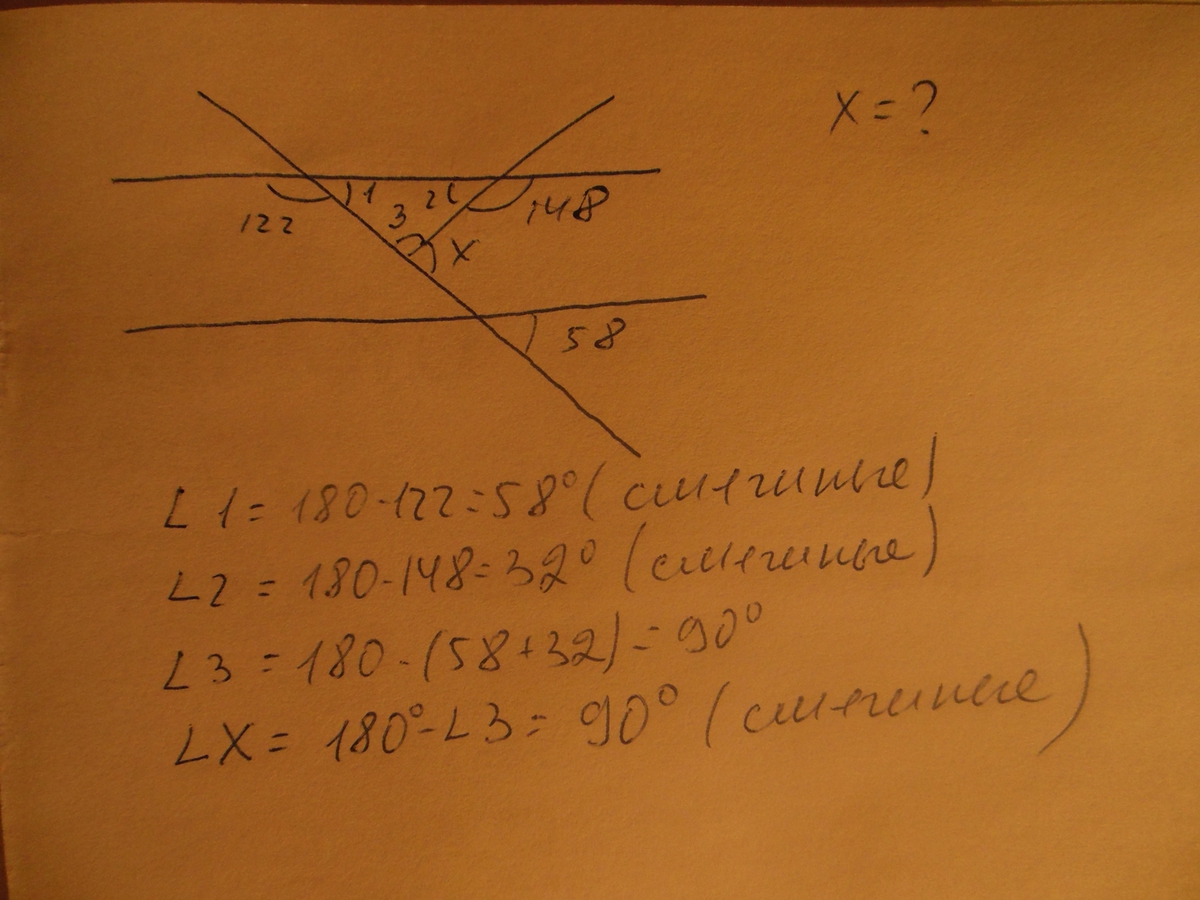 X = ?
122
1
3
2
148
X
58
∠1 = 180-122=58° (смежные)
∠2 = 180-148=32° (смежные)
∠3 = 180-(58+32)=90°
∠X = 180°-∠3= 90° (смежные)